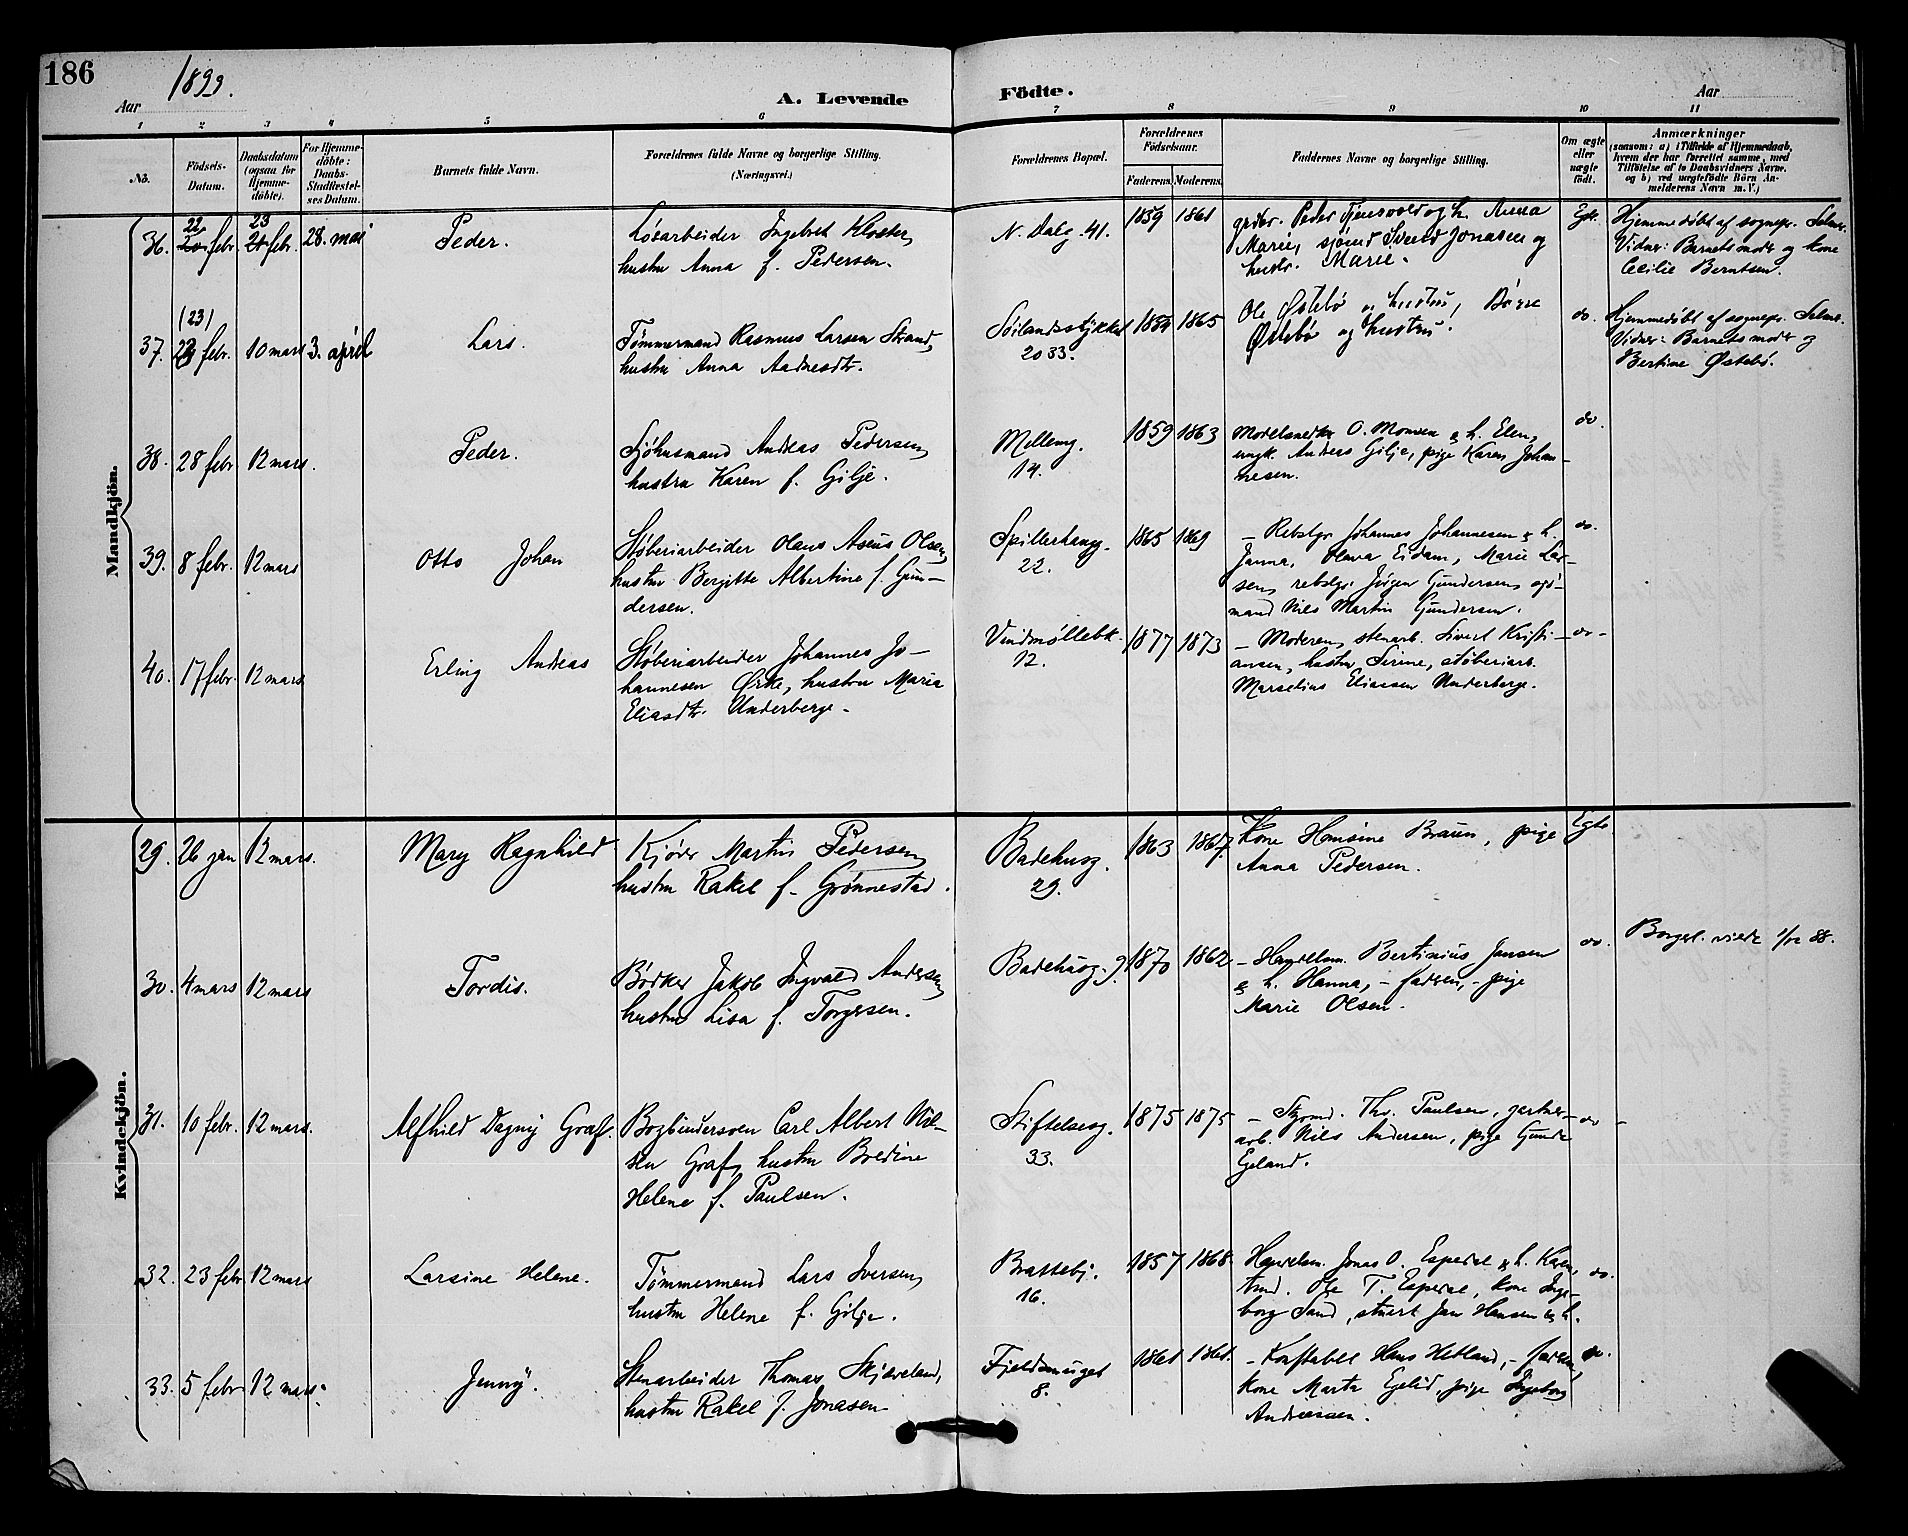 186
Aar 1899.
A. Levende Födte.
Aar
1 2 3 4 5 6 7 8 9 10 11
No.
Födsels-Datum.
Daabsdatum (ogsaa for Hjemmedöbte).
For Hjemmedöbte: Daabs-Stadfestelses Datum.
Barnets fulde Navn.
Forældrenes fulde Navne og borgerlige Stilling. (Næringsvei.)
Forældrenes Bopæl.
Forældrenes Födselsaar.
Faderens. Moderens.
Faddernes Navne og borgerlige Stilling.
Om ægte eller uægte födt.
Anmærkninger
(saasom: a) i Tilfælde af Hjemmedaab,
hvem der har forrettet samme, med
Tilföielse af to Daabsvidners Navne,
og b) ved uægtefödte Börn An-
melderens Navn m. V.)
Mandkjön.
36. 22 febr. 23 febr. 28. mai
Peder.
Løsarbeider Ingebret Kloster,
hustru Anna f. Pedersen.
N. Dalg. 41.
1859 1861
Peder Tjensvold og h. Anna
Marie, sjømd Svend Jonasen og
hustr. Marie.
Egte.
Hjemmedøbt af sognepr. Selmer.
Vidner: Barnets moder og kone
Cecilie Berntsen.
37. (23) febr. 10 mars 3. april
Lars.
Tømmermand Rasmus Larsen Strand,
hustru Anna Aadnesdtr.
Søilandsstykket
2033.
1854 1865
Ole Østebø og hustru, Børre
Østebø og hustru.
do.
Hjemmedøbt af sognepr. Selmer.
Vidner: Barnets moder og
Bertine Østebø.
38. 28 febr. 12 mars.
Peder.
Sjøhusmand Andreas Pedersen,
hustru Karen f. Gilje.
Mellemg.
14.
1859 1863
Modelsnedker O. Monsen & h. Elen,
ungk. Andreas Gilje, pige Karen Johan-
nesen.
do.
39. 8 febr. 12 mars
Otto Johan
Støberiarbeider Olaus Asius Olsen,
hustru Bergitte Albertine f. Gun-
dersen.
Spilderhaugg.
22.
1865 1869
- Rebslgr. Johannes Johannesen & h.
Janna, Olava Eidam, Marie Lar-
sen, rebslgr. Jørgen Gundersen, sjø-
mand Nils Martin Gundersen.
do.
40. 17 febr. 12 mars
Erling Andreas
Støberiarbeider Johannes Jo-
hannesen Ørke, hustru Maria
Eliasdtr. Underberge.
Vindmøllebk.
12.
1877 1873
- Moderen, stenarb. Sivert Kristi-
ansen, hustru Serine, støberiarb.
Marselius Eliassen Underberge.
- do -
Kvindekjön.
29. 26 jan 12 mars.
Mary Ragnhild
Kjører Martin Pedersen,
hustru Rakel f. Grønnestad.
Badehusg.
29.
1863 1867.
Kone Hansine Braun, pige
Anna Pedersen.
Egte.
30. 4 mars 12 mars
Tordis.
Bødker Jakob Ingvald Andersen,
hustru Lisa f. Torgersen.
Badehusg. 9.
1870 1862
- Handelsm. Bertinius Jansen
& h. Hanna, - faderen, - pige
Marie Olsen.
do.
Borgel. viede 1/12 88.
31. 10 febr. 12 mars.
Alfhild Dagny Graf.
Bogbindersven Carl Albert Nil-
sen Graf, hustru Bredine
Helene f. Paulsen.
Stiftelsesg.
33.
1875 1875
- Styrmd. Thv. Paulsen, gartner-
arb. Nils Andersen, pige Gunda
Egeland.
do -
32. 23 febr 12 mars
Larsine Helene.
Tømmermand Lars Iversen,
hustru Helene f. Gilje.
Brattebj.
16.
1857 1868.
Handelsm. Jonas O. Espedal & h. Karen,
Ole T. Espedal, kone Inge-
borg Sand, stuert Jan Hansen & h.
do.
33. 5 febr 12 mars.
Jenny.
Stenarbeider Thomas Skjæveland,
hustru Rakel f. Jonasen
Fjeldsmuget
8.
1861 1861.
- Konstabel Hans Hetland, - faderen,
kone Marta Egelid, pige Ingeborg
Andreassen.
do.